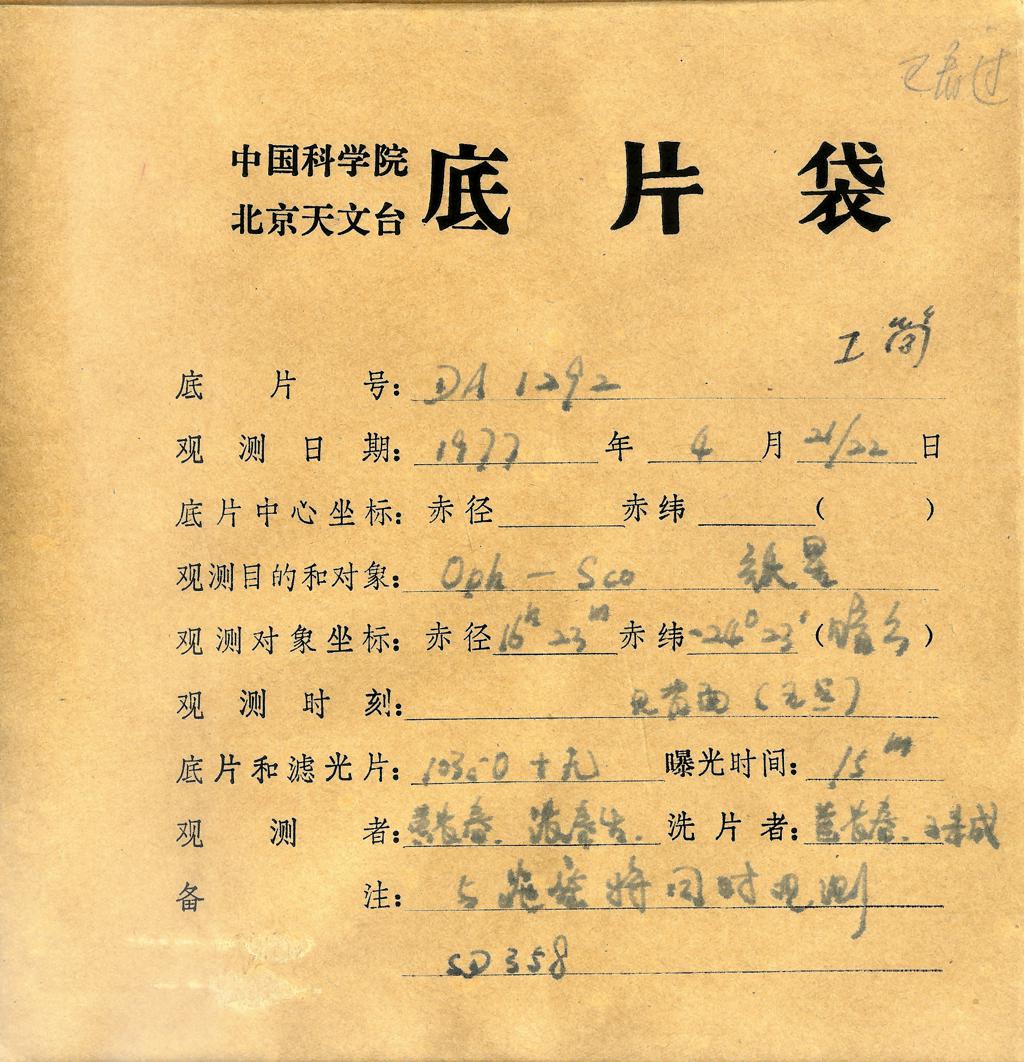 已看过
中国科学院
北京天文台
底片袋
底片号：DA 1292
观测日期：1977年4月21/22日
底片中心坐标：赤径 赤纬 （ ）
观测目的和对象：Oph — Sco
观测对象坐标：赤径16h 23m 赤纬-24° 23′（暗云）
观测时刻：见背面
底片和滤光片：103a-0 + 无 曝光时间：15m
观测者： 洗片者：
备注：与 同时观测
SD358